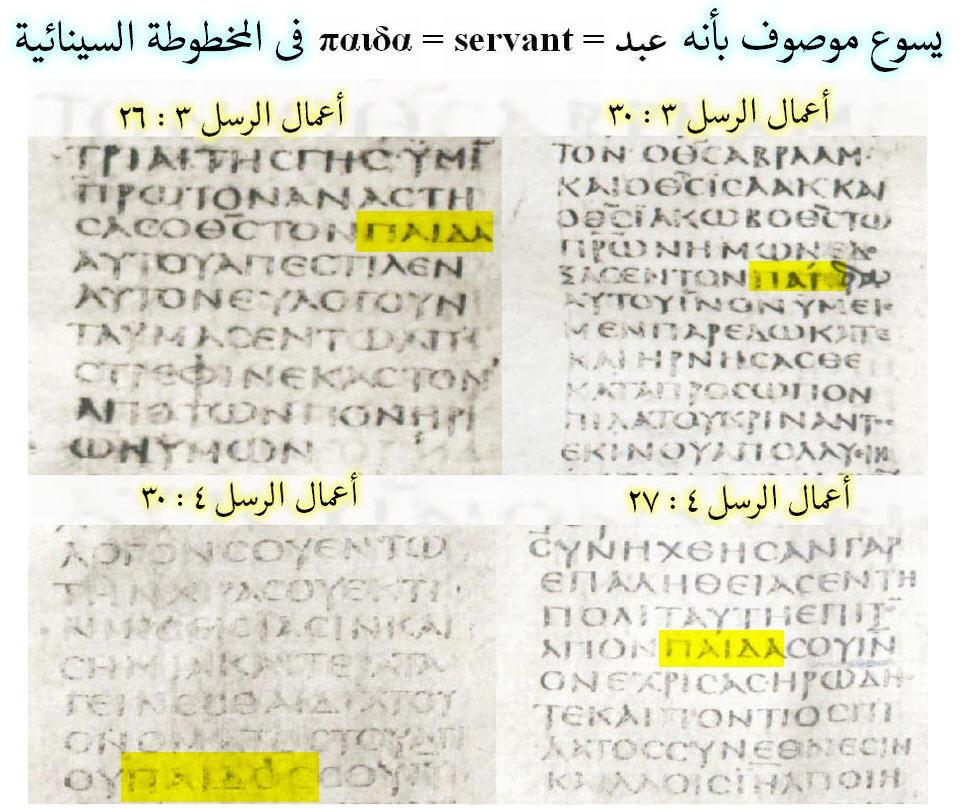 يسوع موصوف بأنه عبد = servant = παιδα فى المخطوطة السينائية
أعمال الرسل ٣ : ٣٠
ΤΟΝ ΟΘϹΑΒΡΑΑΜ
ΚΑΙΟΘϹΙϹΑΑΚΚΑΙ
ΟΘϹΙΑΚΩΒΟΘϹΤΩ
ΠΡΩΝΗΜΩΝΕΔΟ
ΞΑϹΕΝΤΟΝΠΑΙΔΑ
ΑΥΤΟΥΙΝΟΝΥΜΕΙ
ΜΕΝΠΑΡΕΔΩΚΑΤΕ
ΚΑΙΗΡΝΗϹΑϹΘΕ
ΚΑΤΑΠΡΟϹΩΠΟΝ
ΠΙΛΑΤΟΥΚΡΙΝΑΝΤ
ΕΚΙΝΟΥΑΠΟΛΛΥΙΝ
أعمال الرسل ٣ : ٢٦
ΤΡΙΑΙΤΗϹΓΗϹ ΥΜΙ
ΠΡΩΤΟΝΑΝΑϹΤΗ
ϹΑϹΟΘϹΤΟΝΠΑΙΔΑ
ΑΥΤΟΥΑΠΕϹΤΙΛΕΝ
ΑΥΤΟΝΕΥΛΟΓΟΥΝ
ΤΑΥΜΑϹΕΝΤΩΑΠΟ
ϹΤΡΕΦΙΝΕΚΑϹΤΟΝ
ΑΠΟΤΩΝΠΟΝΗΡΙ
ΩΝΥΜΩΝ
أعمال الرسل ٤ : ٢٧
ϹΥΝΗΧΘΗϹΑΝΓΑΡ
ΕΠΑΛΗΘΕΙΑϹΕΝΤΗ
ΠΟΛΙΤΑΥΤΗΕΠΙΤ
ΑΓΙΟΝΠΑΙΔΑϹΟΥΙΝ
ΟΝΕΧΡΙϹΑϹΗΡΩΔΗ
ΤΕΚΑΙΠΟΝΤΙΟϹΠΙ
ΛΑΤΟϹϹΥΝΕΘΝΕϹΙΝ
ΚΑΙΛΑΟΙϹΙΗΛΠΟΙΗ
أعمال الرسل ٤ : ٣٠
ΛΟΓΟΝϹΟΥΕΝΤΩ
ΤΗΝΧΙΡΑϹΟΥΕΚΤΙ
ΝΙΝΕΙϹΙΑϹΙΝΚΑΙ
ϹΗΜΙΑΚΑΙΤΕΡΑΤΑ
ΓΕΙΝΕϹΘΑΙΔΙΑΤΟΥ
ΟΝΟΜΑΤΟϹΤΟΥΑΓΙ
ΟΥΠΑΙΔΟϹϹΟΥΙΥ